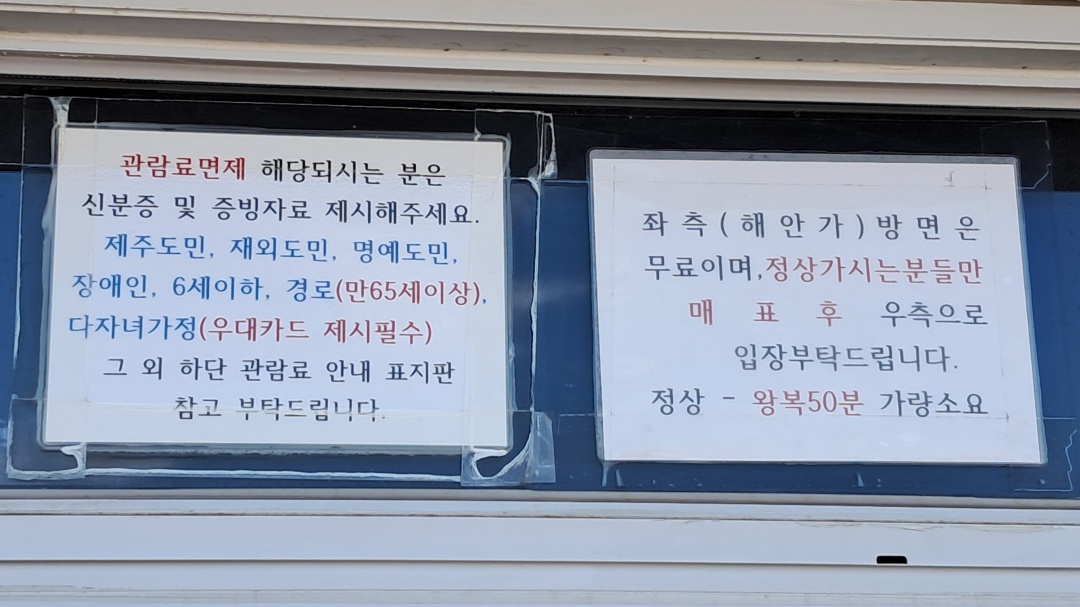 관람료면제 해당되시는 분은
신분증 및 증빙자료 제시해주세요.
제주도민, 재외도민, 명예도민,
장애인, 6세이하, 경로(만65세이상),
다자녀가정(우대카드 제시필수)
그 외 하단 관람료 안내 표지판
참고 부탁드립니다.
좌측(해안가)방면은
무료이며,정상가시는분들만
매 표 후 우측으로
입장부탁드립니다.
정상 - 왕복50분 가량소요